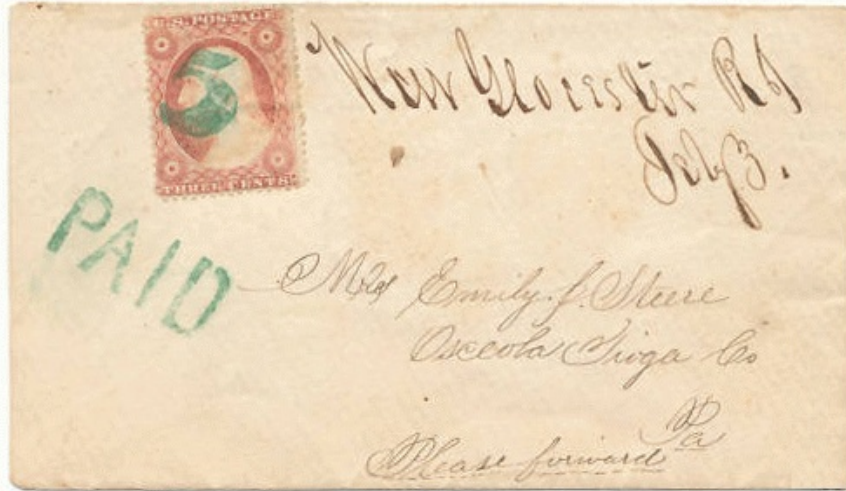 U.S. POSTAGE
5
THREE CENTS
PAID
West Glocester R I
July 3.
Mrs Emily. J. Steere
Osceola Tioga Co
Pa
Please forward